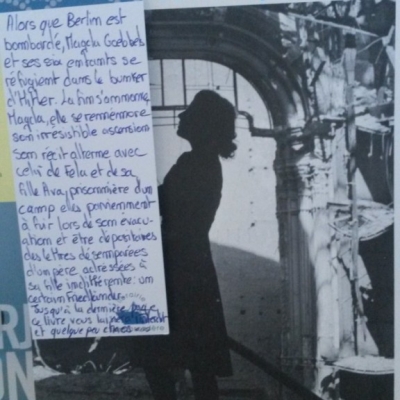 Alors que Berlin est
bombardé, Magda Goebbels
et ses six enfants se
réfugient dans le bunker
d'Hitler. La fin s'annonce
Magda, elle se remémore
son irrésistible ascension
Son récit alterne avec
celui de Fela et de sa
fille Ava, prisonnière d'un
camp elles parviennent
à fuir lors de son évacu-
ation et être dépositaires
des lettres désemparées
d'un père adressées à
sa fille indifférente : un
certain Friedländer.
Jusqu'à la dernière page,
ce livre vous
et quelque peu